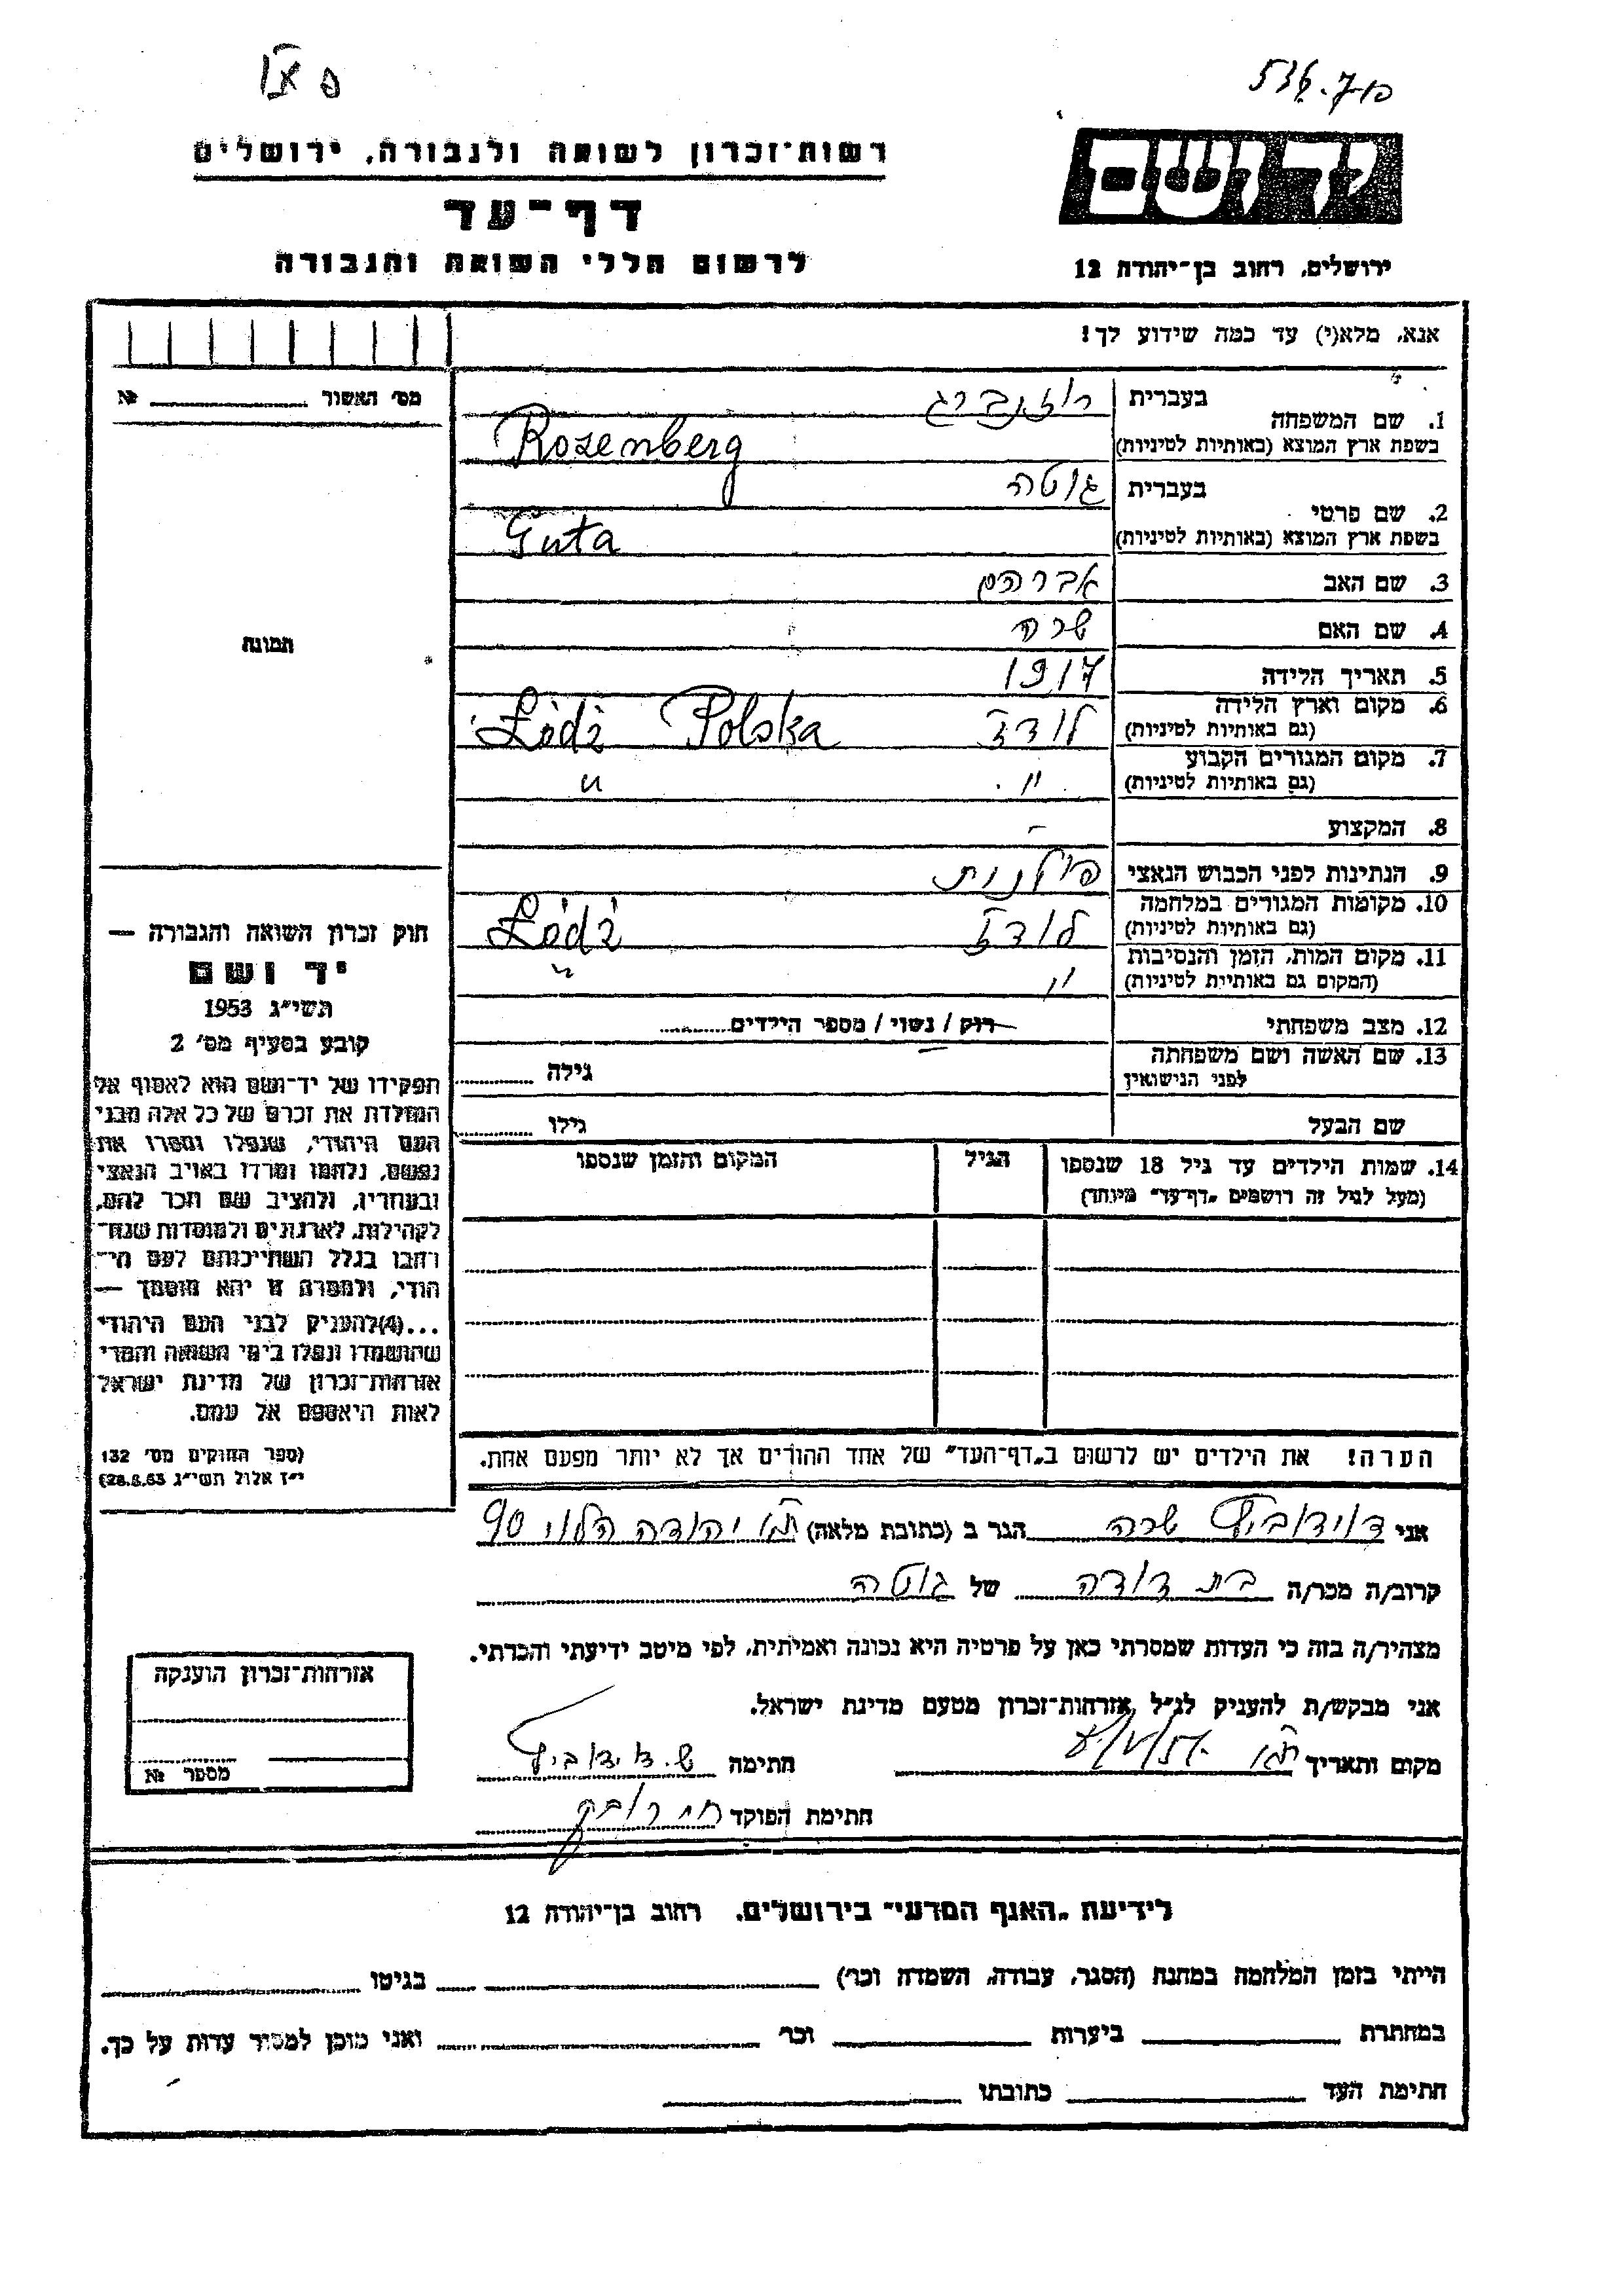 רשות־זכרון לשואה ולגבורה, ירושלים
דף־עד
לרשום חללי השואה והגבורה
יד ושם
ירושלים, רחוב בן־יהודה 12
אנא, מלא(י) עד כמה שידוע לך!
מס׳ האשור № 
1. שם המשפחה בעברית רוזנברג
בשפת ארץ המוצא (באותיות לטיניות) Rozenberg
2. שם פרטי בעברית גוטה
בשפת ארץ המוצא (באותיות לטיניות) Guta
3. שם האב אברהם
4. שם האם שרה
5. תאריך הלידה 1917
6. מקום וארץ הלידה (גם באותיות לטיניות) לודז Łódź Polska
7. מקום המגורים הקבוע (גם באותיות לטיניות) " "
8. המקצוע -
9. הנתינות לפני הכבוש הנאצי פולנית
10. מקומות המגורים במלחמה (גם באותיות לטיניות) לודז Łódź
11. מקום המות, הזמן והנסיבות (המקום גם באותיות לטיניות) " "
12. מצב משפחתי רוק / נשוי / מספר הילדים
13. שם האשה ושם משפחתה לפני הנישואין גילה
שם הבעל גילו
14. שמות הילדים עד גיל 18 שנספו הגיל המקום והזמן שנספו
(מעל לגיל זה רושמים "דף־עד" מיוחד)
הערה! את הילדים יש לרשום ב"דף־העד" של אחד ההורים אך לא יותר מפעם אחת.
תמונה
חוק זכרון השואה והגבורה —
יד ושם
תשי״ג 1953
קובע בסעיף מס׳ 2
תפקידו של יד־ושם הוא לאסוף אל
המולדת את זכרם של כל אלה מבני
העם היהודי, שנפלו ומסרו את
נפשם, נלחמו ומרדו באויב הנאצי
ובעוזריו, ולהציב שם וזכר להם,
לקהילות, לארגונים ולמוסדות שנח־
רבו בגלל השתייכותם לעם הי־
הודי, ולמטרה זו יהא מוסמך —
...(4)להעניק לבני העם היהודי
שהושמדו ונפלו בימי השואה והמרי
אזרחות־זכרון של מדינת ישראל
לאות היאספם אל עמם.
(ספר החוקים מס׳ 132
י״ז אלול תשי״ג 28.8.53)
אני דוידוביץ שרה הגר ב (כתובת מלאה) ת"א יהודה הלוי 90
קרוב/ה מכר/ה בת דודה של גוטה
מצהיר/ה בזה כי העדות שמסרתי כאן על פרטיה היא נכונה ואמיתית, לפי מיטב ידיעתי והכרתי.
אני מבקש/ת להעניק לנ״ל אזרחות־זכרון מטעם מדינת ישראל.
מקום ותאריך ת"א חתימה ש. דוידוביץ
חתימת הפוקד
אזרחות־זכרון הוענקה
מספר №
לידיעת "האגף המדעי" בירושלים, רחוב בן־יהודה 12
הייתי בזמן המלחמה במחנה (הסגר, עבודה, השמדה וכו׳) בגיטו
במחתרת ביערות וכו׳ ואני מוכן למסור עדות על כך.
חתימת העד כתובתו